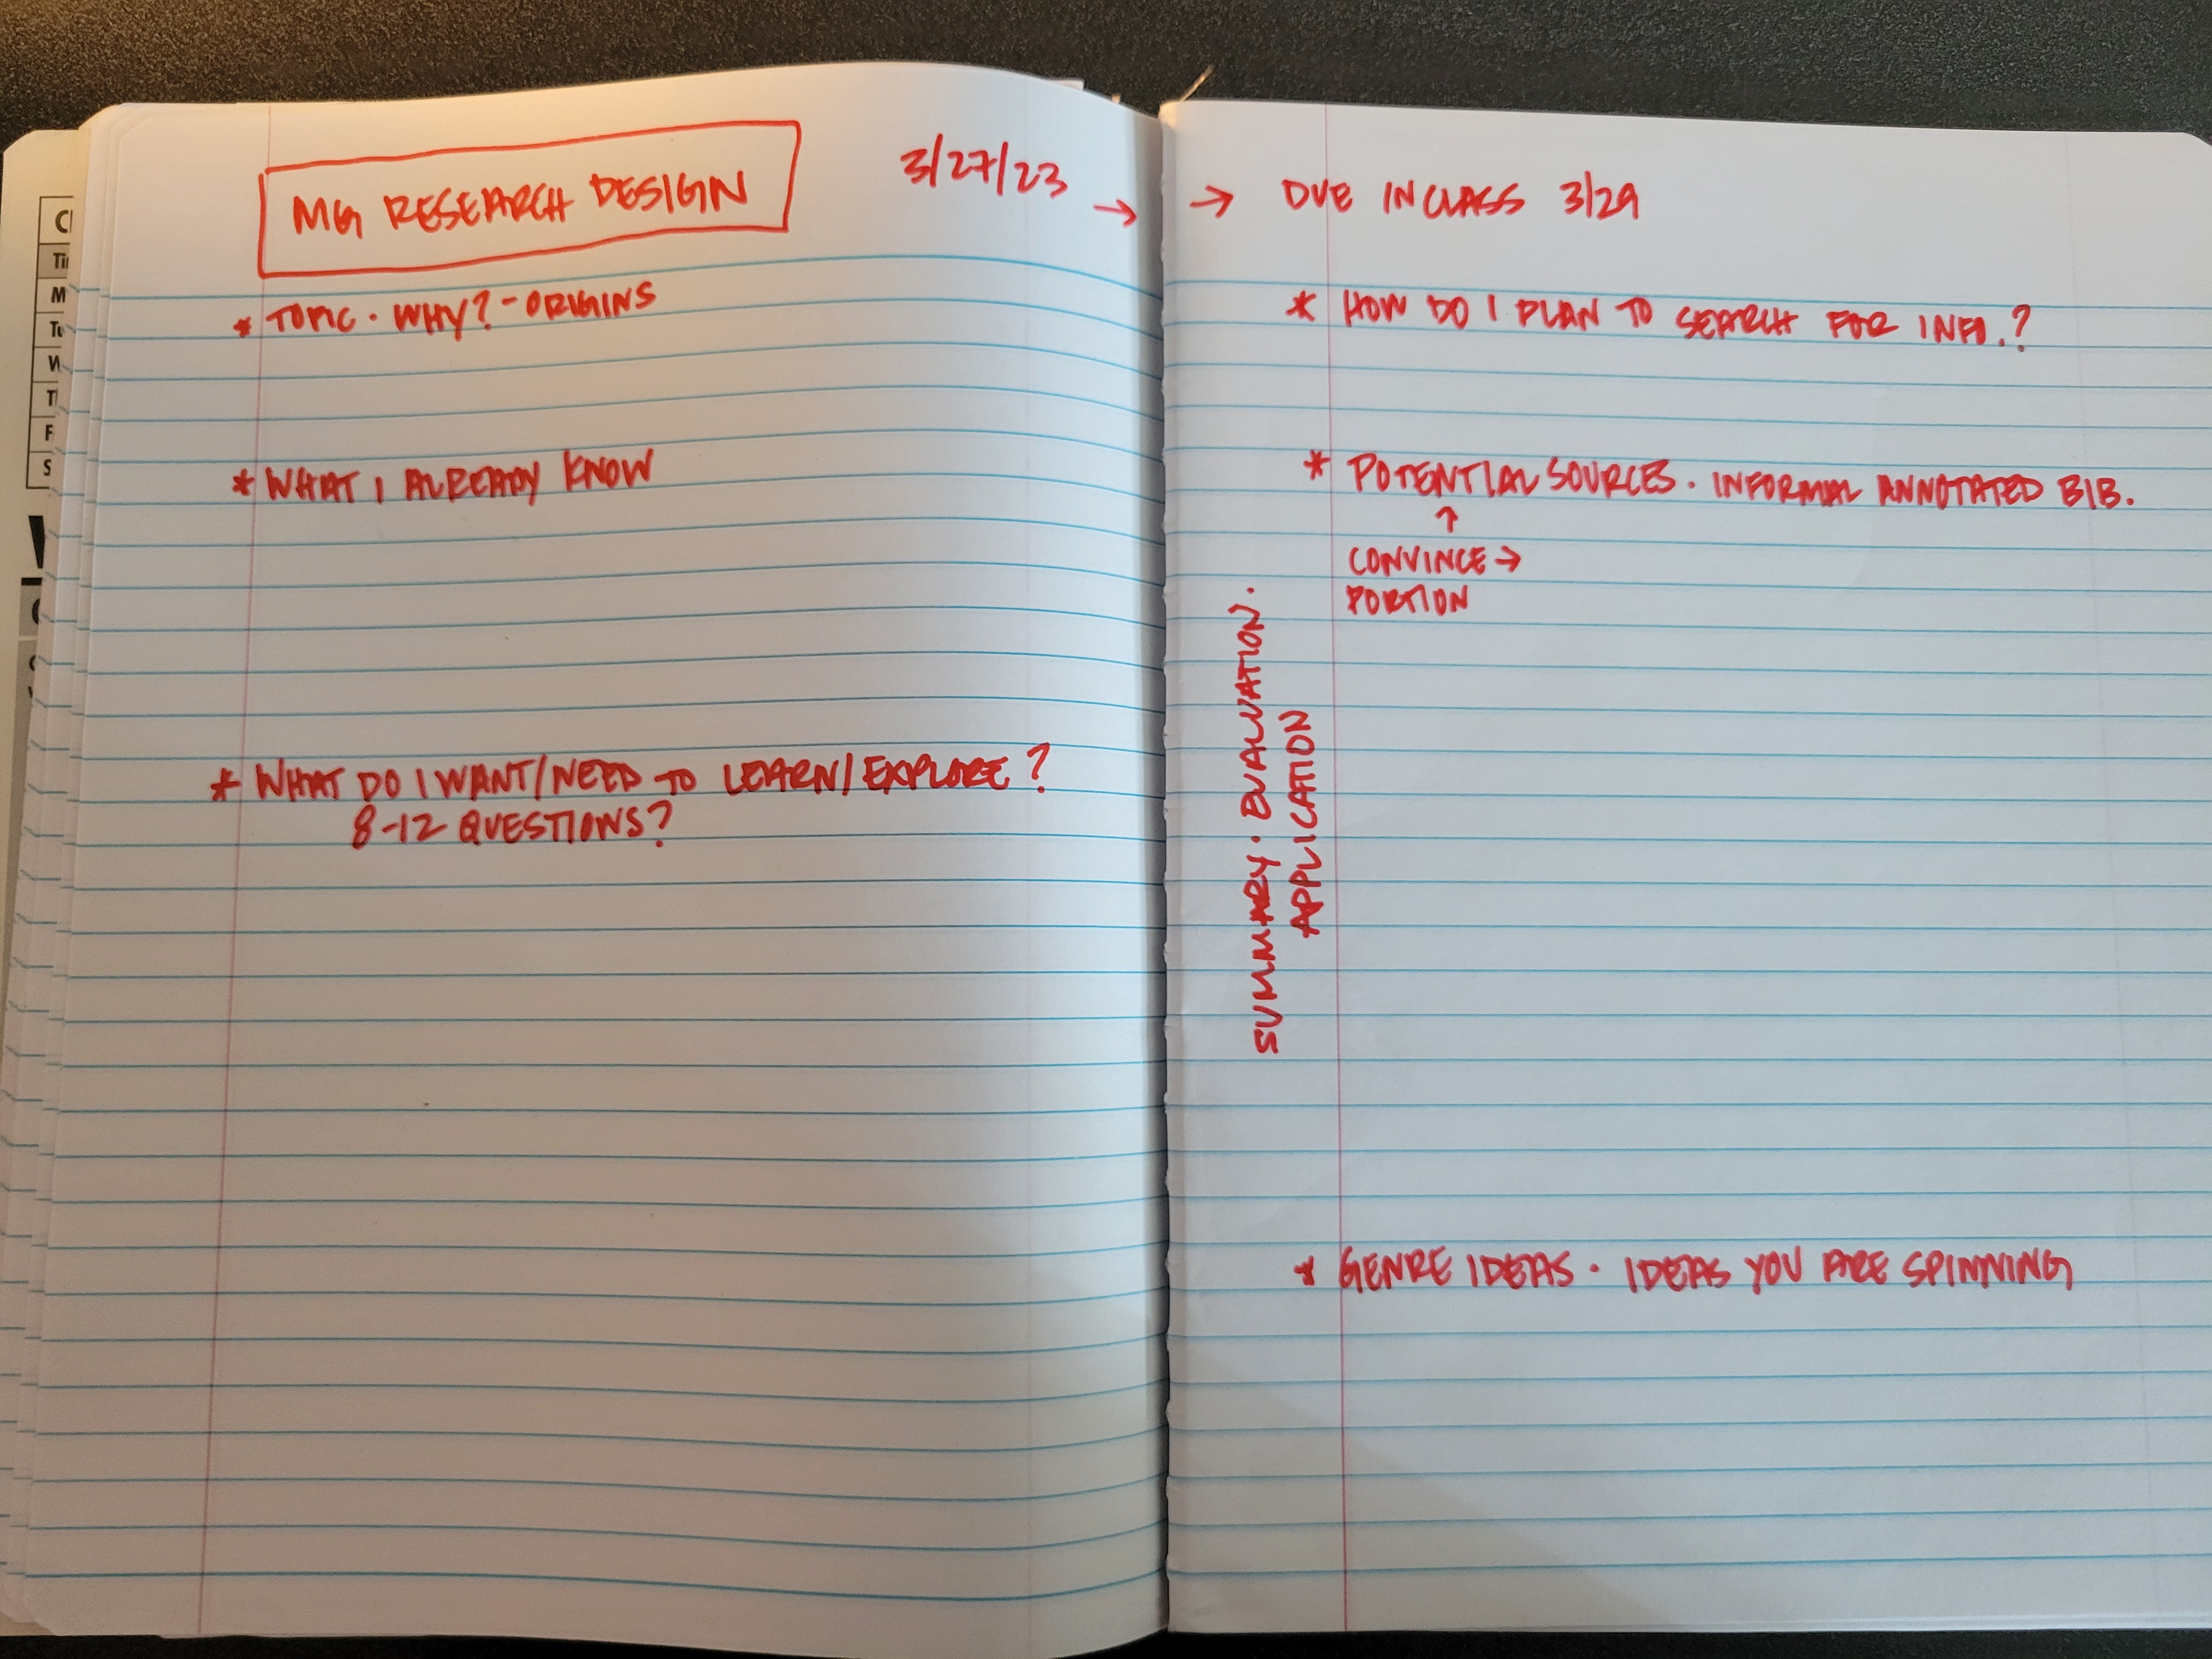 MG RESEARCH DESIGN
3/27/23 →
* TOPIC · WHY? - ORIGINS
* WHAT I ALREADY KNOW
* WHAT DO I WANT/NEED TO LEARN/EXPLORE?
8-12 QUESTIONS?
→ DUE IN CLASS 3/29
* HOW DO I PLAN TO SEARCH FOR INFO.?
* POTENTIAL SOURCES · INFORMAL ANNOTATED BIB.
↑
CONVINCE →
PORTION
SUMMARY · EVALUATION ·
APPLICATION
* GENRE IDEAS · IDEAS YOU ARE SPINNING